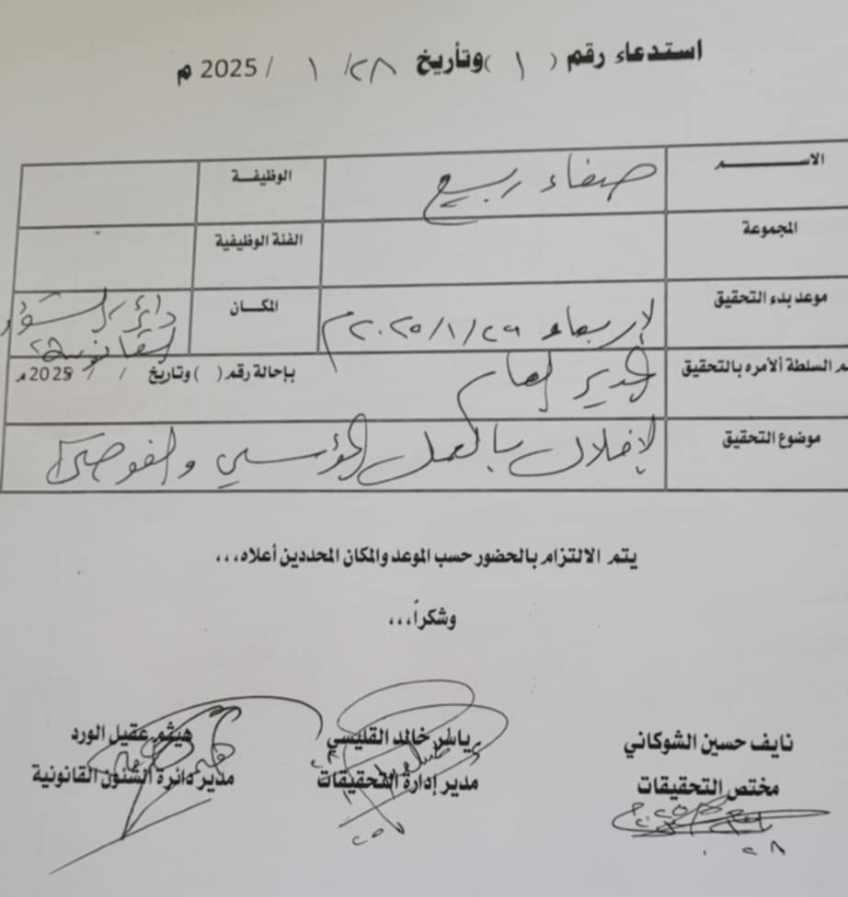 استدعاء رقم ( ١ ) وتأريخ ٢٨/ ١ /2025 م
الاســـــــم صفاء ربيع الوظيفــة
المجموعة الفئة الوظيفية
موعد بدء التحقيق الإربعاء ٢٠٢٥/١/٢٩م المكــان دائرة الشؤون القانونية
م السلطة الأمره بالتحقيق المدير العام بإحالة رقم ( ) وتاريخ / / 2025م
موضوع التحقيق الإخلال بالعمل المؤسسي والفوضى
يتم الالتزام بالحضور حسب الموعد والمكان المحددين أعلاه،،،
وشكراً،،،
نايف حسين الشوكاني ياسر خالد القليسي هيثم عقيل الورد
مختص التحقيقات مدير إدارة التحقيقات مدير دائرة الشئون القانونية